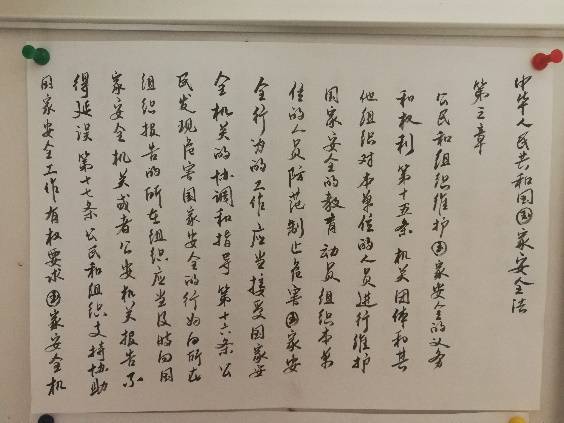 中华人民共和国国家安全法
第三章
公民和组织维护国家安全的义务
和权利 第十五条 机关团体和其
他组织对本单位的人员进行维护
国家安全的教育 动员组织本单
位的人员防范制止危害国家安
全行为的工作 应当接受国家安
全机关的协调和指导 第十六条 公
民发现危害国家安全的行为向所在
组织报告的所在组织应当及时向国
家安全机关或者公安机关报告不
得延误 第十七条 公民和组织支持协助
国家安全工作有权要求国家安全机